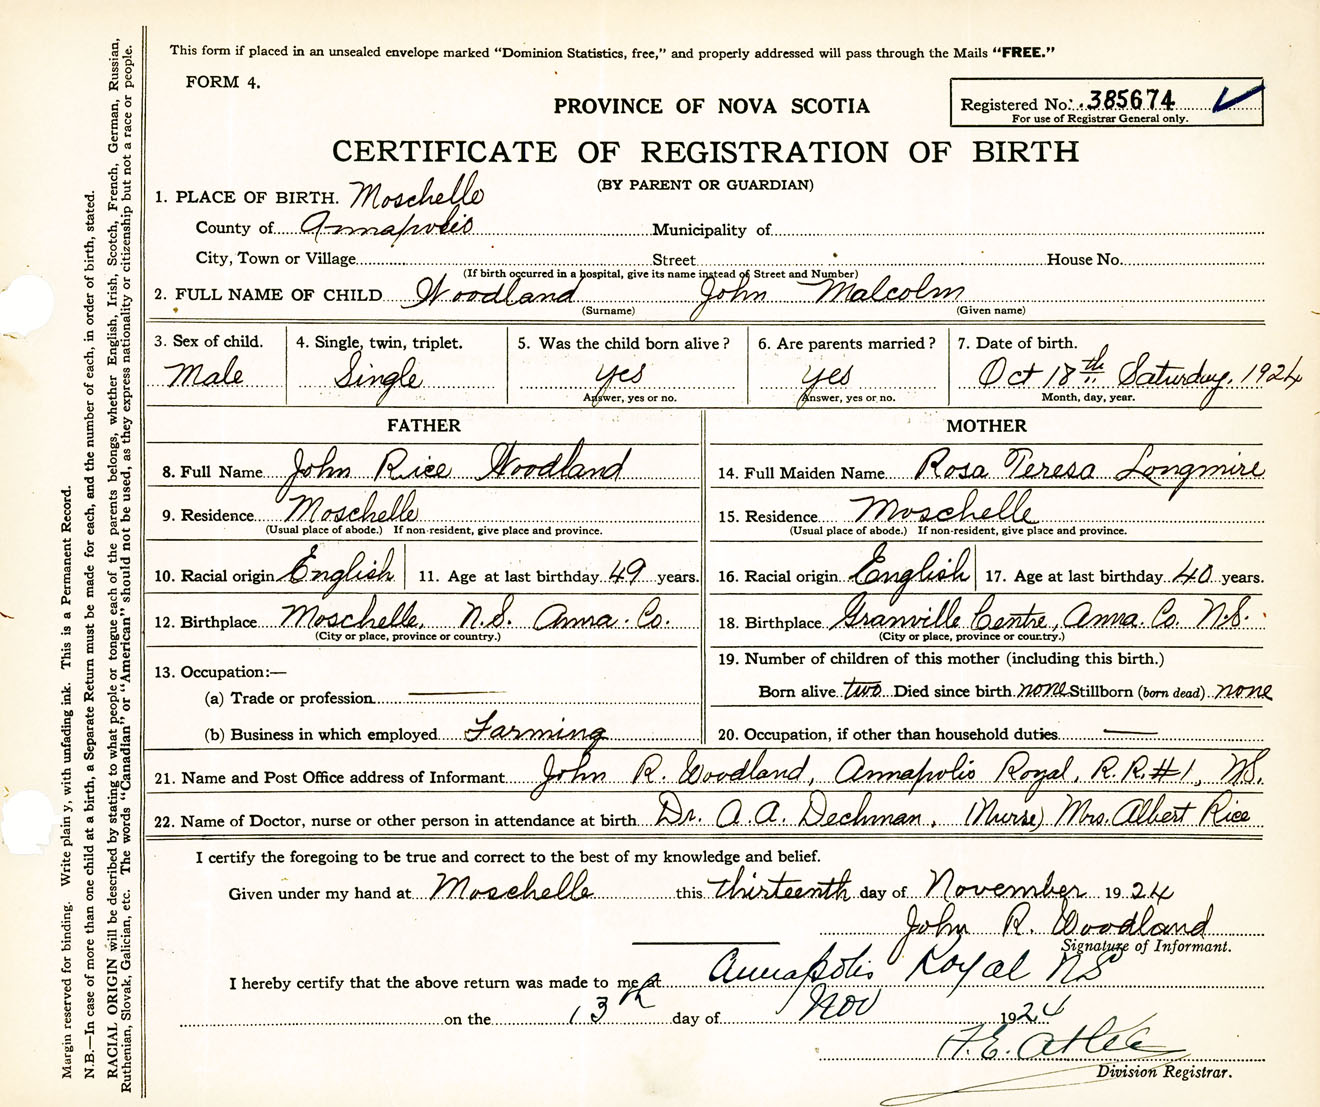 This form if placed in an unsealed envelope marked “Dominion Statistics, free,” and properly addressed will pass through the Mails “FREE.”
FORM 4.
PROVINCE OF NOVA SCOTIA
Registered No. 385674
For use of Registrar General only.
CERTIFICATE OF REGISTRATION OF BIRTH
(BY PARENT OR GUARDIAN)
1. PLACE OF BIRTH. Moschelle
County of Annapolis Municipality of
City, Town or Village Street House No.
(If birth occurred in a hospital, give its name instead of Street and Number)
2. FULL NAME OF CHILD Woodland John Malcolm
(Surname) (Given name)
3. Sex of child. 4. Single, twin, triplet. 5. Was the child born alive? 6. Are parents married? 7. Date of birth.
Male Single yes yes Oct 18th Saturday, 1924
Answer, yes or no. Answer, yes or no. Month, day, year.
FATHER MOTHER
8. Full Name John Rice Woodland 14. Full Maiden Name Rosa Teresa Longmire
9. Residence Moschelle 15. Residence Moschelle
(Usual place of abode.) If non-resident, give place and province. (Usual place of abode.) If non-resident, give place and province.
10. Racial origin English 11. Age at last birthday 49 years. 16. Racial origin English 17. Age at last birthday 40 years.
12. Birthplace Moschelle, N.S. Anna. Co. 18. Birthplace Granville Centre, Anna. Co. N.S.
(City or place, province or country.) (City or place, province or country.)
19. Number of children of this mother (including this birth.)
13. Occupation:—
(a) Trade or profession — Born alive two Died since birth none Stillborn (born dead) none
(b) Business in which employed Farming 20. Occupation, if other than household duties —
21. Name and Post Office address of Informant John R. Woodland, Annapolis Royal, R.R.#1, N.S.
22. Name of Doctor, nurse or other person in attendance at birth Dr. A.A. Dechman, (Nurse) Mrs. Albert Rice
I certify the foregoing to be true and correct to the best of my knowledge and belief.
Given under my hand at Moschelle this thirteenth day of November 1924
John R. Woodland
Signature of Informant.
I hereby certify that the above return was made to me at Annapolis Royal NS
on the 13th day of Nov 1924
F.E.
Division Registrar.
Margin reserved for binding. Write plainly, with unfading ink. This is a Permanent Record.
N.B.—In case of more than one child at a birth, a Separate Return must be made for each, and the number of each, in order of birth, stated.
RACIAL ORIGIN will be described by stating to what people or tongue each of the parents belongs, whether English, Irish, Scotch, French, German, Russian,
Ruthenian, Slovak, Galician, etc. The words “Canadian” or “American” should not be used, as they express nationality or citizenship but not a race or people.